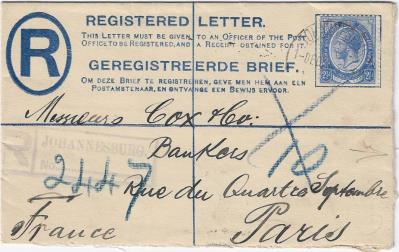 REGISTERED LETTER.
THIS LETTER MUST BE GIVEN TO AN OFFICER OF THE POST
OFFICE TO BE REGISTERED, AND A RECEIPT OBTAINED FOR IT.
R
GEREGISTREERDE BRIEF.
OM DEZE BRIEF TE REGISTREREN, GEVE MEN HEM AAN EEN
POSTAMBTENAAR, EN ONTVANGE EEN BEWIJS ERVOOR.
Messieurs Cox & Co.
R
JOHANNESBURG
Bankers
2447
Rue du Quatre Septembre
France
Paris